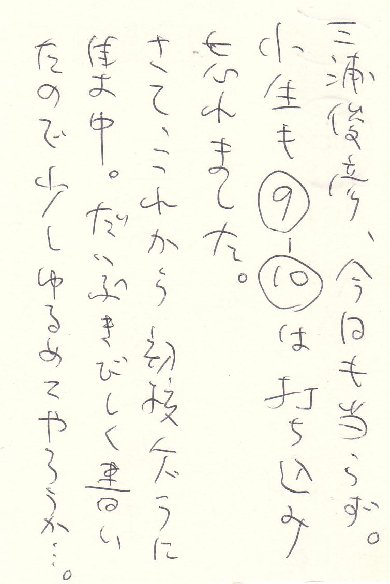 三浦俊彦、今日も当らず。
小生も⑨-⑩は打ち込み
も心れました。
さて、これから初校ゲラに
集中。だいぶきびしく書い
たので少しゆるめてやろうか…。